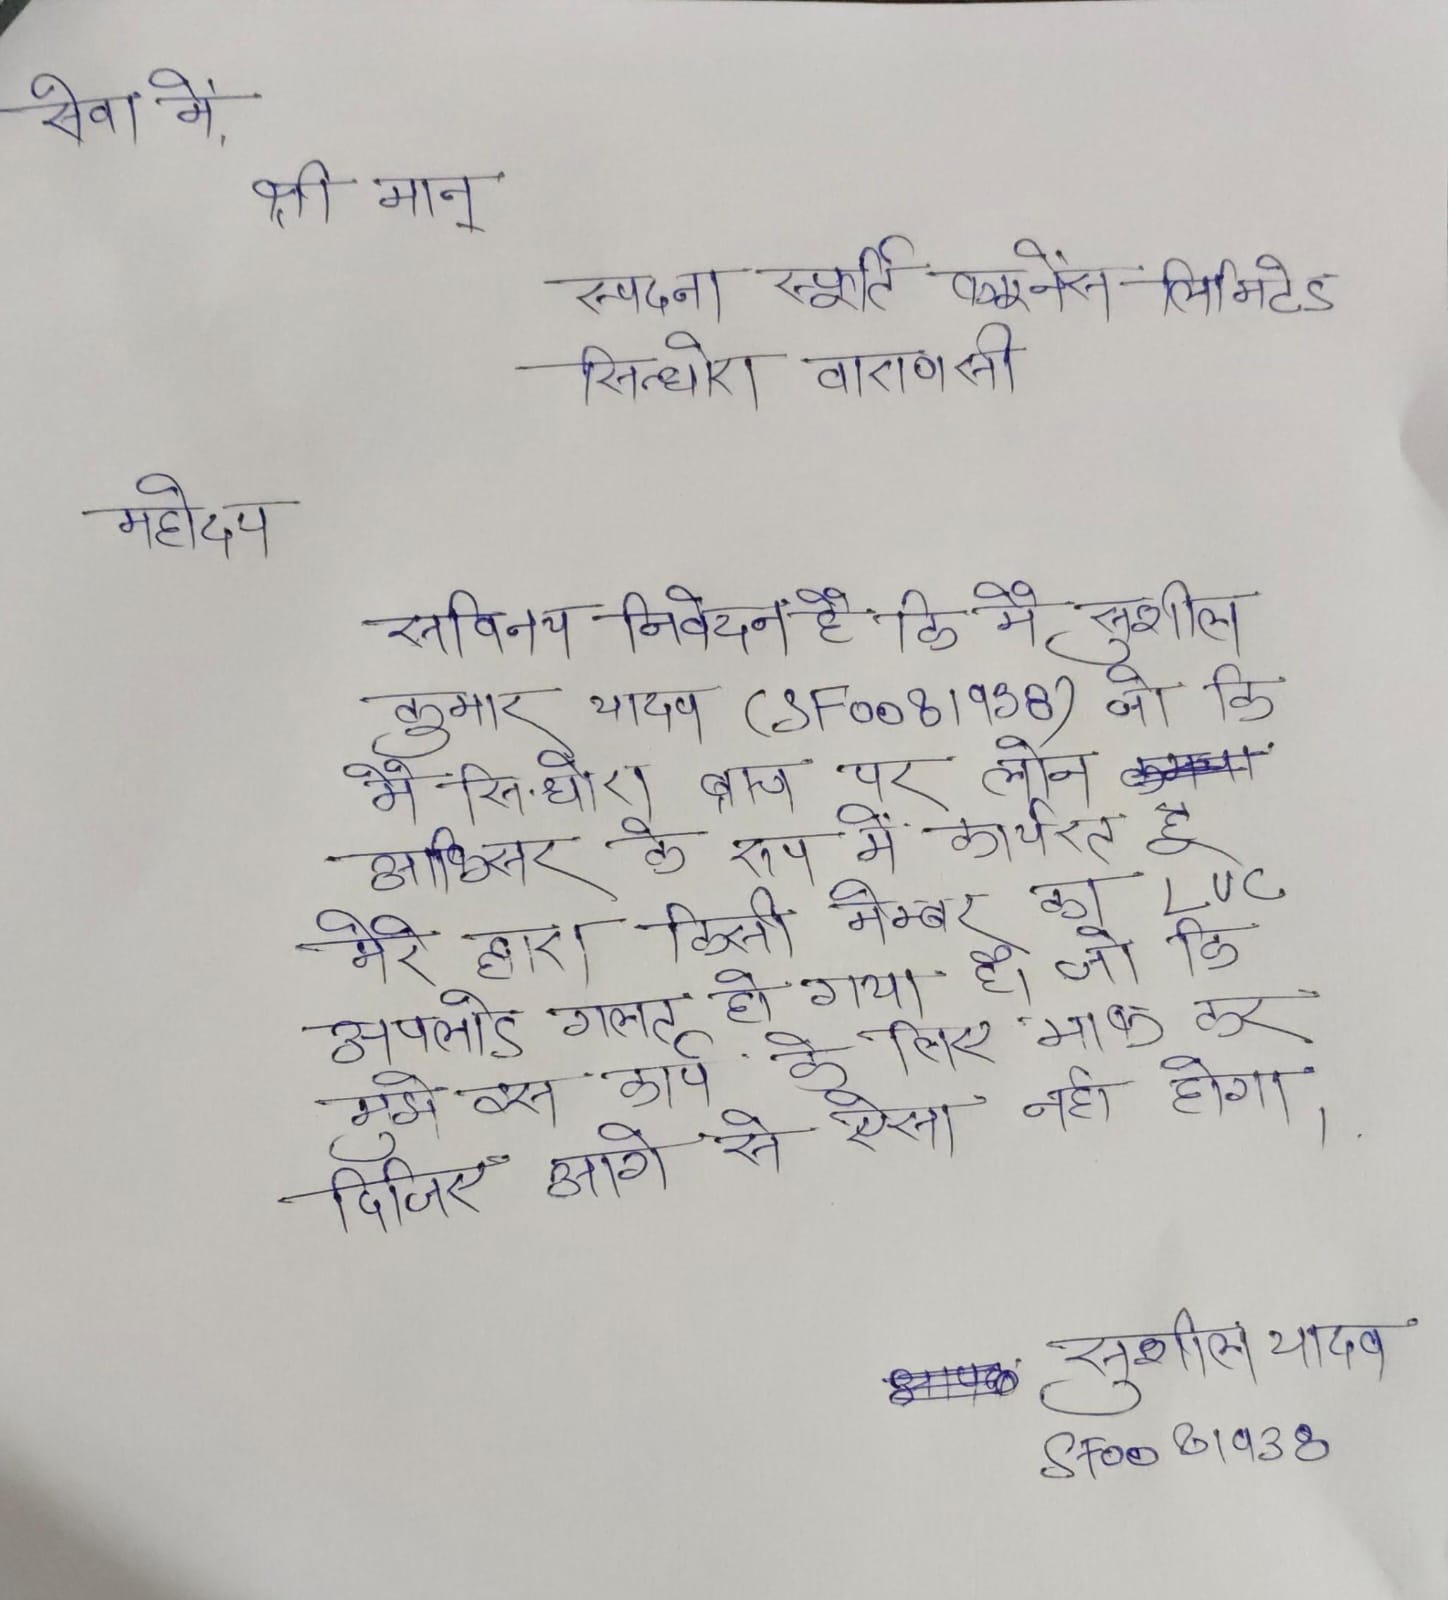 सेवा में,
श्री मान्
स्पदना स्फूर्ति फाइनेंस लिमिटेड
सिन्धोरा वाराणसी
महोदय
सविनय निवेदन है कि मै सुशील
कुमार यादव (SF0081938) जो कि
मै सिन्धोरा ब्राच पर लोन
आफिसर के रूप में कार्यरत हू
मेरे द्वारा किसी मेम्बर का LUC
अपलोड गलत हो गया है। जो कि
मुझे इस कार्य के लिए माफ कर
दिजिए आगे से ऐसा नही होगा।
सुशील यादव
SF0081938